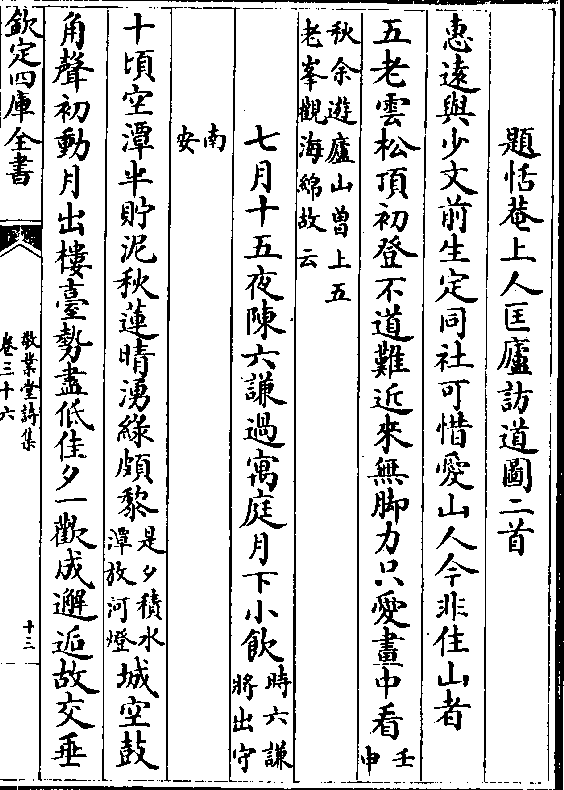 題恬菴上人匡廬訪道圖二首
惠遠與少文前生定同社可惜愛山人今非住山者
五老雲松頂初登不道難近來無脚力只愛畫中看壬申
秋余遊廬山曾上五
老峯觀海綿故云
七月十五夜陳六謙過寓庭月下小飲時六謙
將出守
南
安
十頃空潭半貯泥秋蓮晴湧綠頗黎是夕積水
潭放河燈城空鼓
角聲初動月出樓臺勢盡低佳夕一歡成邂逅故交垂
欽定四庫全書
敬業堂詩集
卷三十六
十三